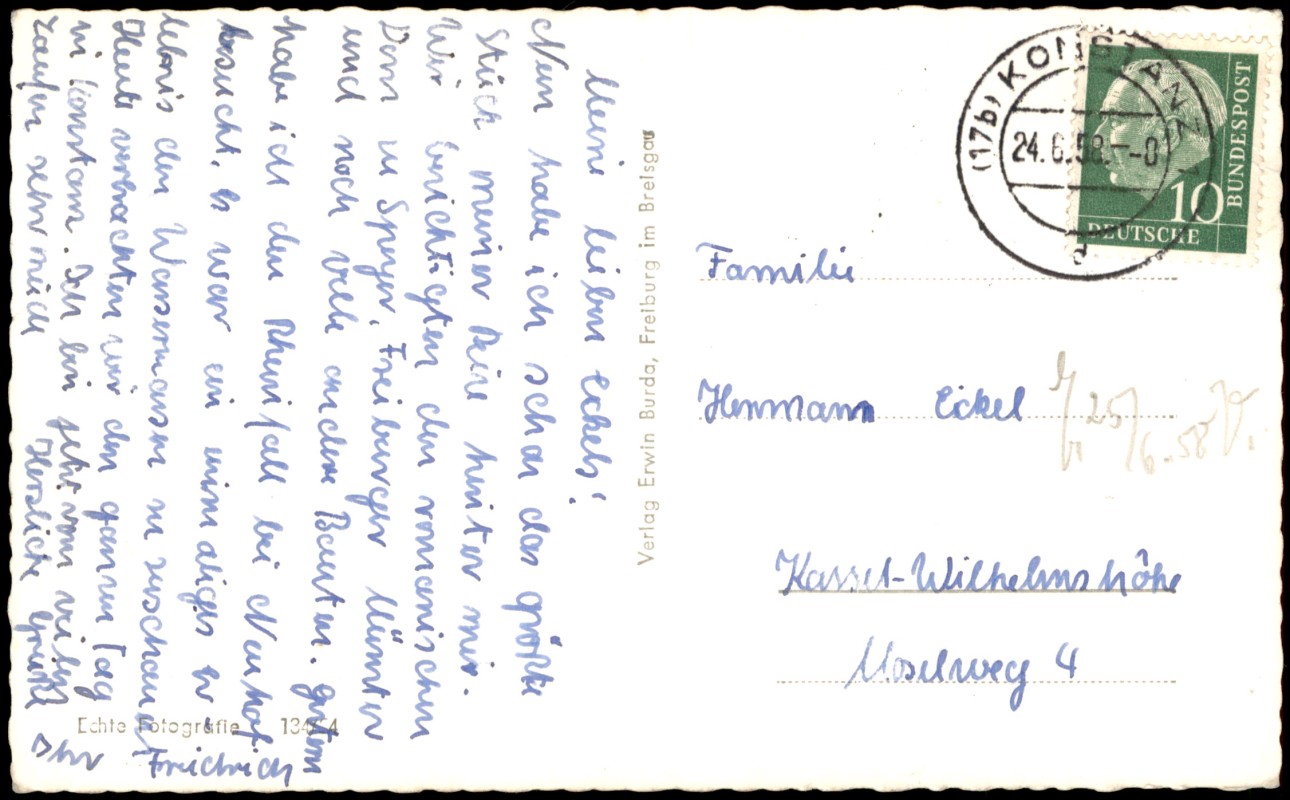 Meine lieben Eckels!
Nun habe ich schon das größte
Stück meiner Reise hinter mir.
Wir besichtigten den romanischen
Dom zu Speyer, Freiburger Münster
und noch viele andere Bauten. gestern
habe ich den Rheinfall bei Neuhof
besucht. Es war ein einmaliges Er-
lebnis den Wassermassen zuzuschauen
Heute verbrachten wir den ganzen Tag
in Konstanz. Ich bin jetzt vom vielen
Laufen sehr müde
Herzliche Grüße
Ihr Freidrich
Echte Fotografie
Verlag Erwin Burda, Freiburg im Breisgau
(17b) KONSTANZ
24.6.58.--8
d
10
DEUTSCHE
BUNDESPOST
Familie
Hermann Eckel
25/6.58
Kassel-Wilhelmshöhe
Moselweg 4